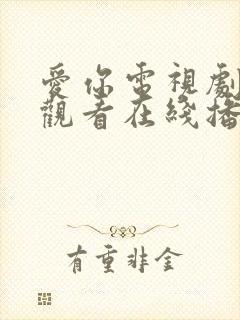 愛你電視劇
觀看在綫播
有重非金